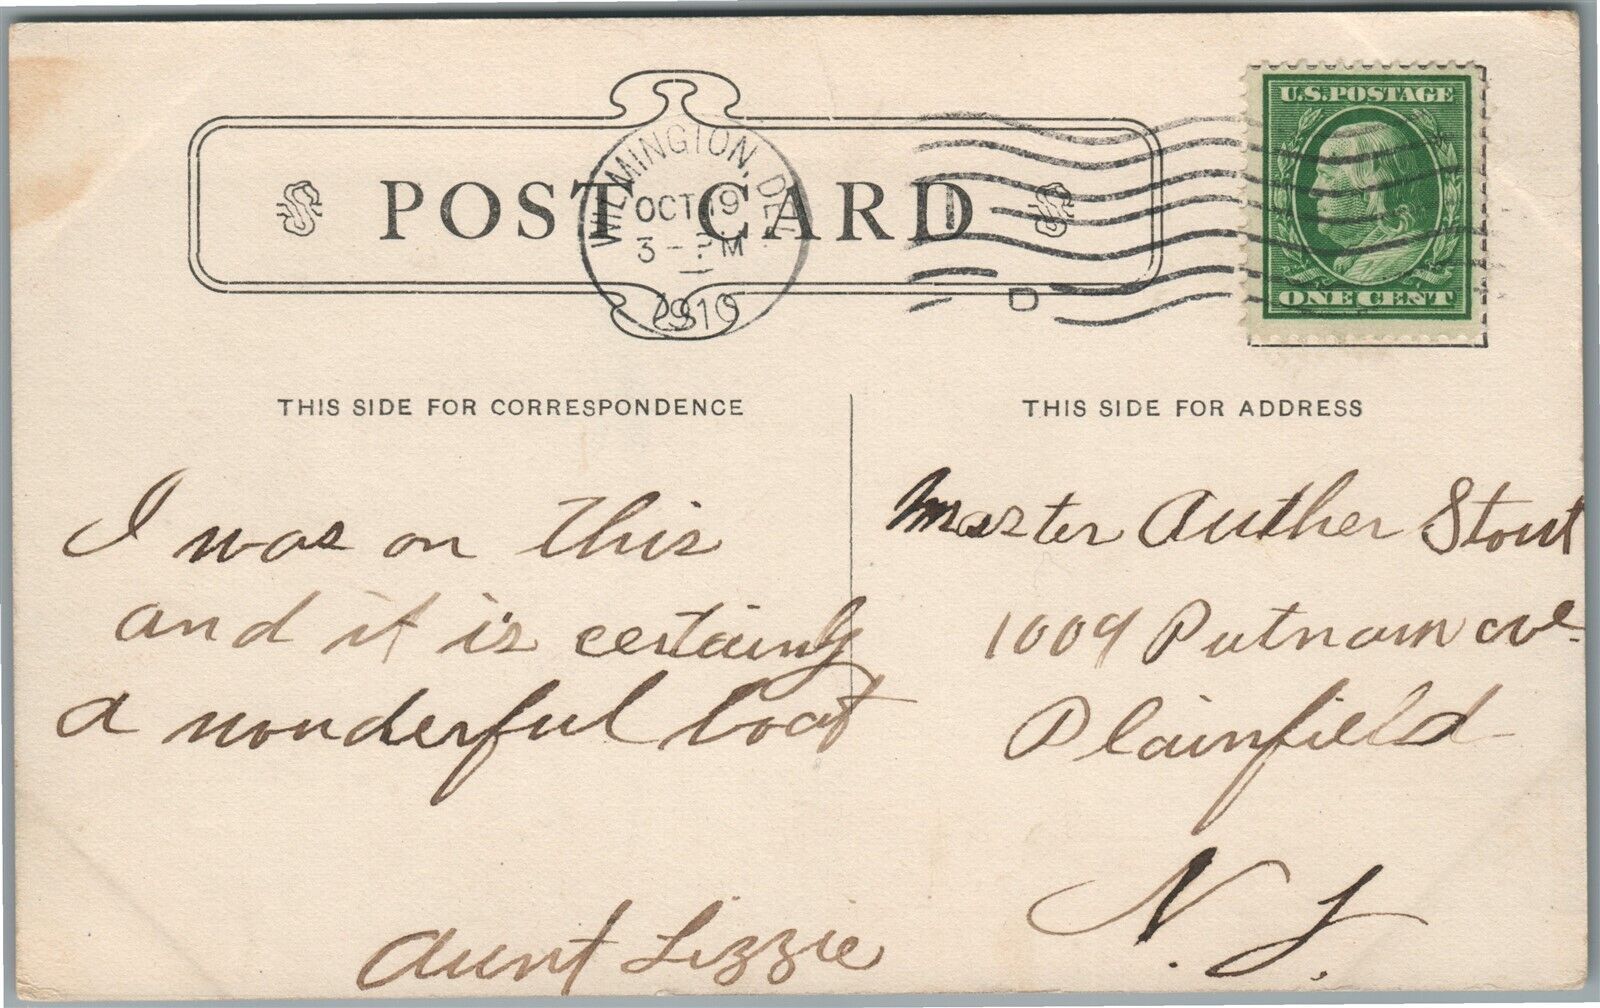 POST CARD
WILMINGTON, DEL.
OCT 19
3 - PM
1910
D
U.S. POSTAGE
ONE CENT
THIS SIDE FOR CORRESPONDENCE
I was on this
and it is certainly
a wonderful boat
Aunt Lizzie
THIS SIDE FOR ADDRESS
Master Auther Stout
1009 Putnam ave.
Plainfield
N. J.